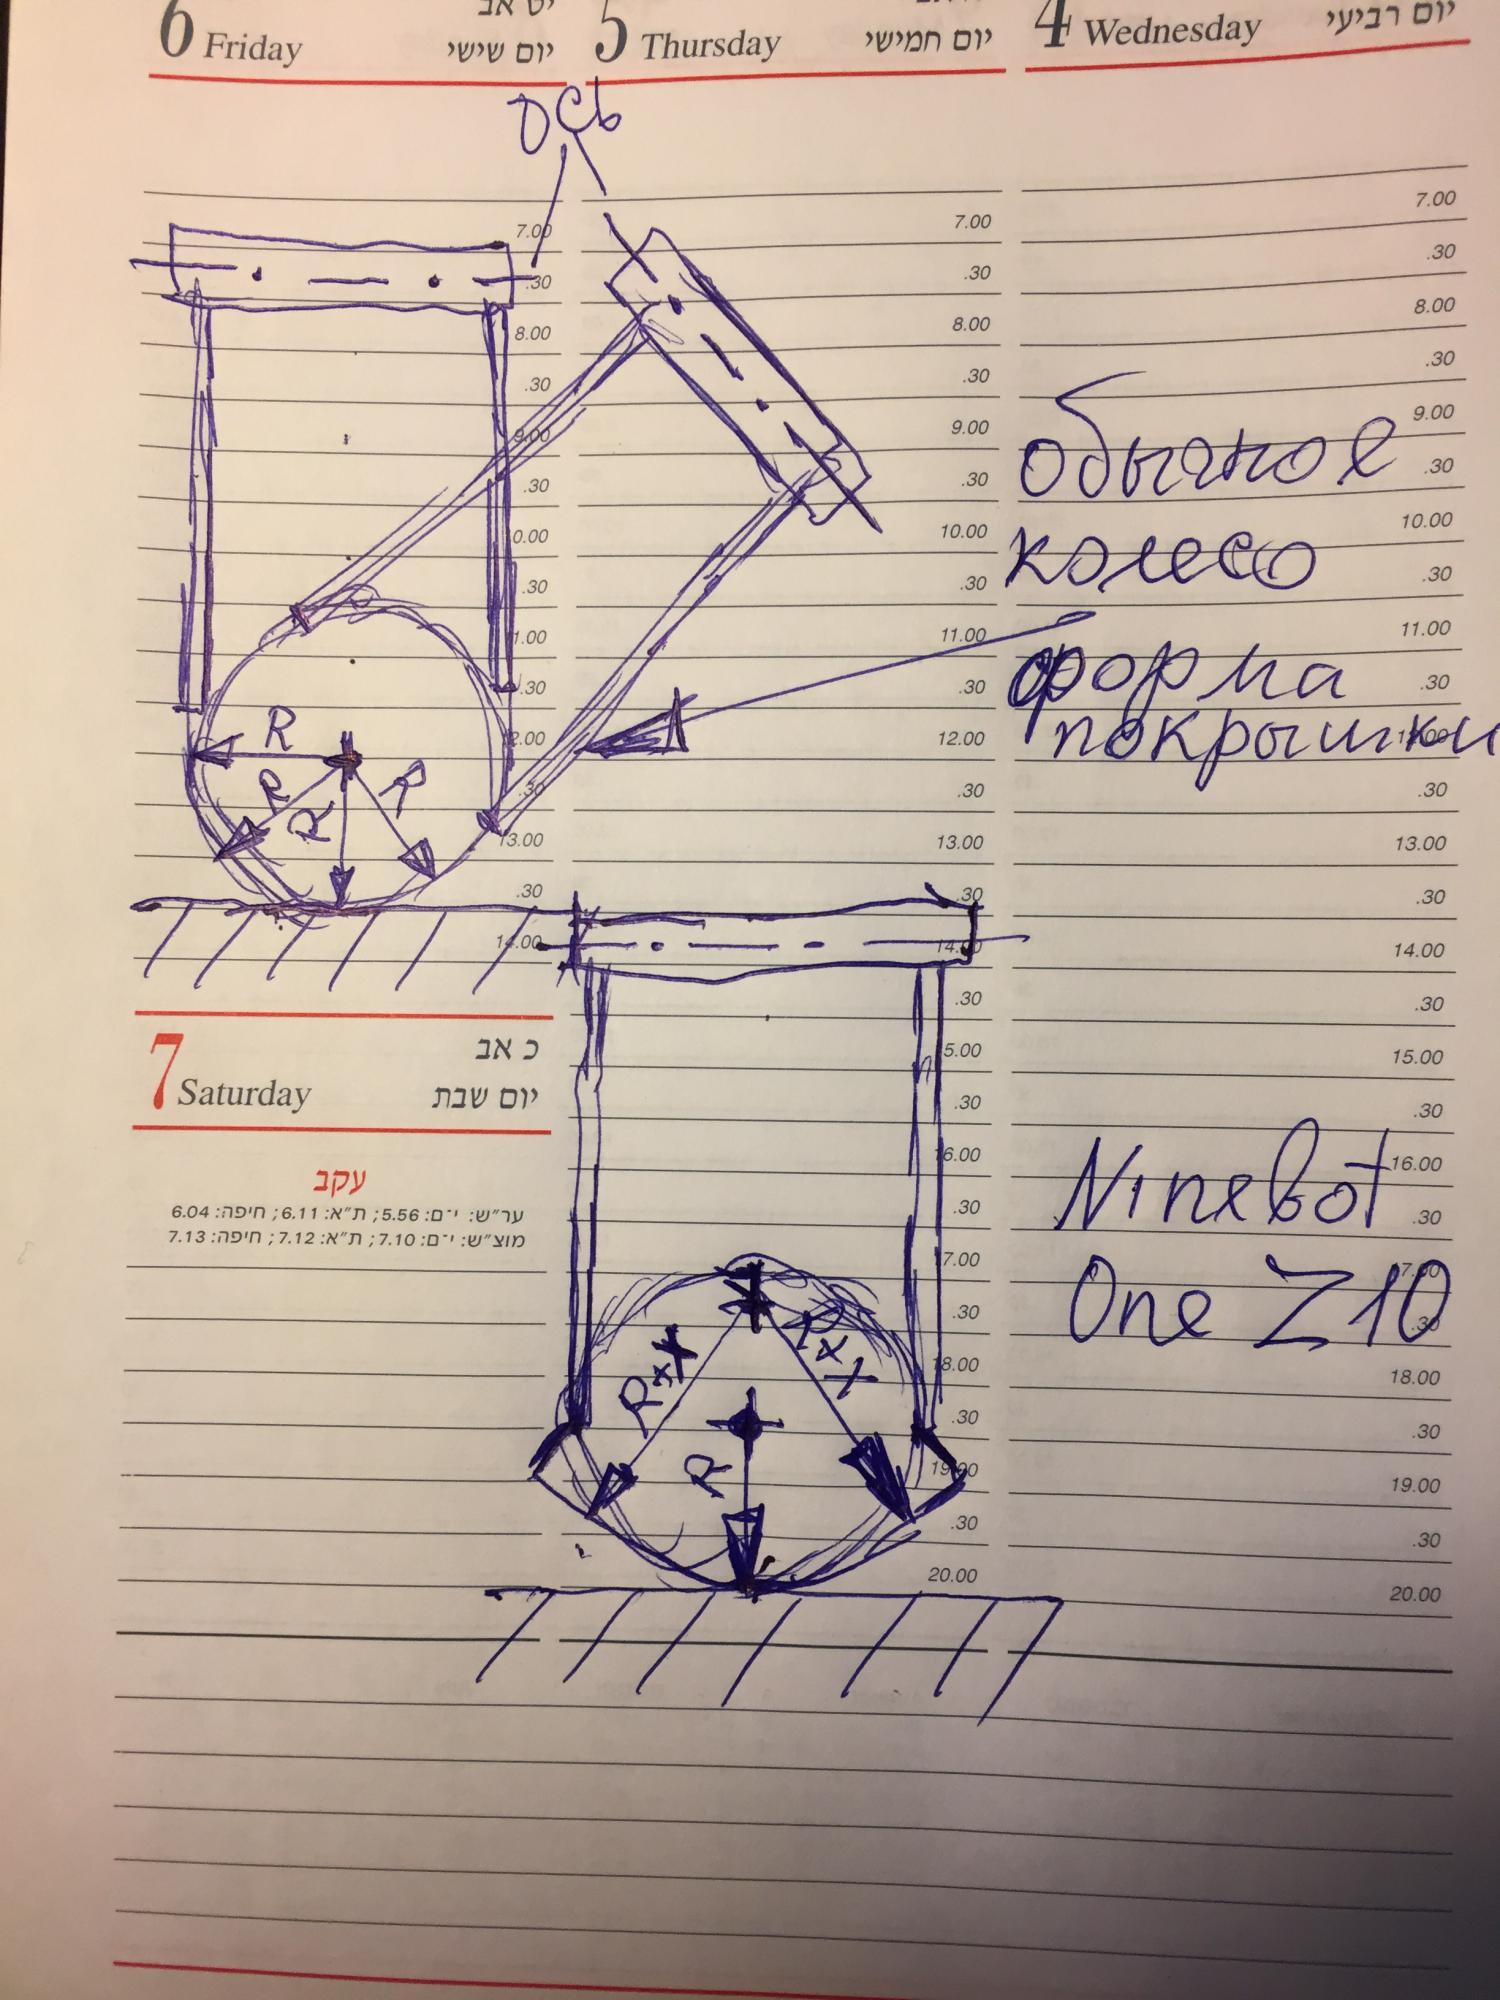 6 Friday יום שישי
5 Thursday יום חמישי
4 Wednesday יום רביעי
ОСЬ
7.00
.30
8.00
.30
9.00
.30
10.00
.30
11.00
.30
12.00
.30
13.00
.30
14.00
7.00
.30
8.00
.30
9.00
.30
10.00
.30
11.00
.30
12.00
.30
13.00
.30
14.00
.30
15.00
.30
16.00
.30
17.00
.30
18.00
.30
19.00
.30
20.00
7.00
.30
8.00
.30
9.00
.30
10.00
.30
11.00
.30
12.00
.30
13.00
.30
14.00
.30
15.00
.30
16.00
.30
17.00
.30
18.00
.30
19.00
.30
20.00
обычное
колесо
форма
покрышки
R
R
R
R
7 Saturday כ אב
יום שבת
עקב
ער״ש: י-ם: 5.56; ת״א: 6.11; חיפה: 6.04
מוצ״ש: י-ם: 7.10; ת״א: 7.12; חיפה: 7.13
Ninebot
One Z10
R+X
R+X
R